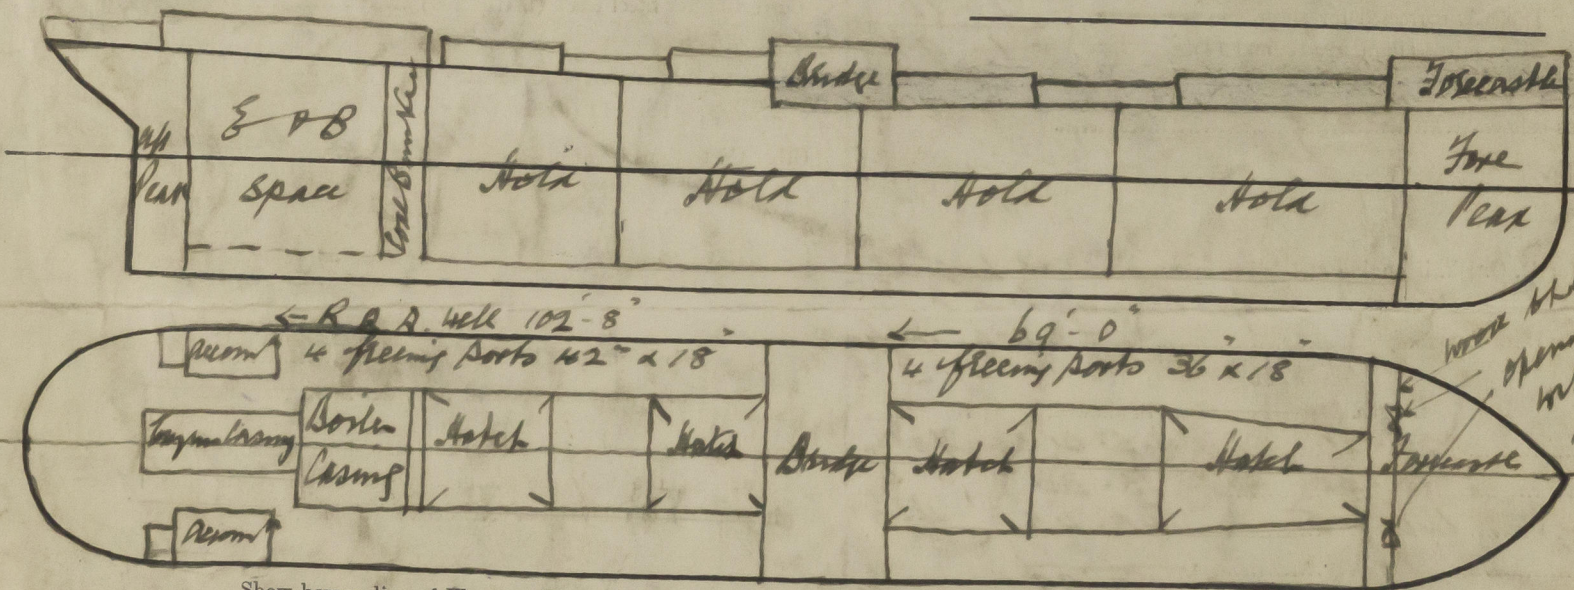 Bridge
Forecastle
Aft
Peak
E & B
Space
Coal Bunker
Hold
Hold
Hold
Hold
Fore
Peak
← R.Q.D. Well 102'-8"
4 freeing ports 42" x 18"
← 69'-0"
4 freeing ports 36" x 18"
Accomn
Engine Casing
Boiler
Casing
Hatch
Hatch
Bridge
Hatch
Hatch
Forecastle
Accomn